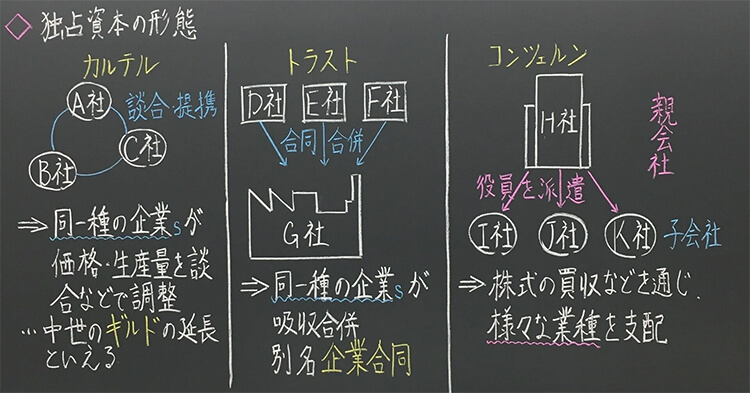 ◇ 独占資本の形態
カルテル
A社
談合・提携
B社
C社
⇒ 同一種の企業sが
価格・生産量を談
合などで調整
…中世のギルドの延長
といえる
トラスト
D社 E社 F社
合同 合併
G社
⇒ 同一種の企業sが
吸収合併
別名 企業合同
コンツェルン
H社
親会社
役員を派遣
I社 J社 K社 子会社
⇒ 株式の買収などを通じ、
様々な業種を支配